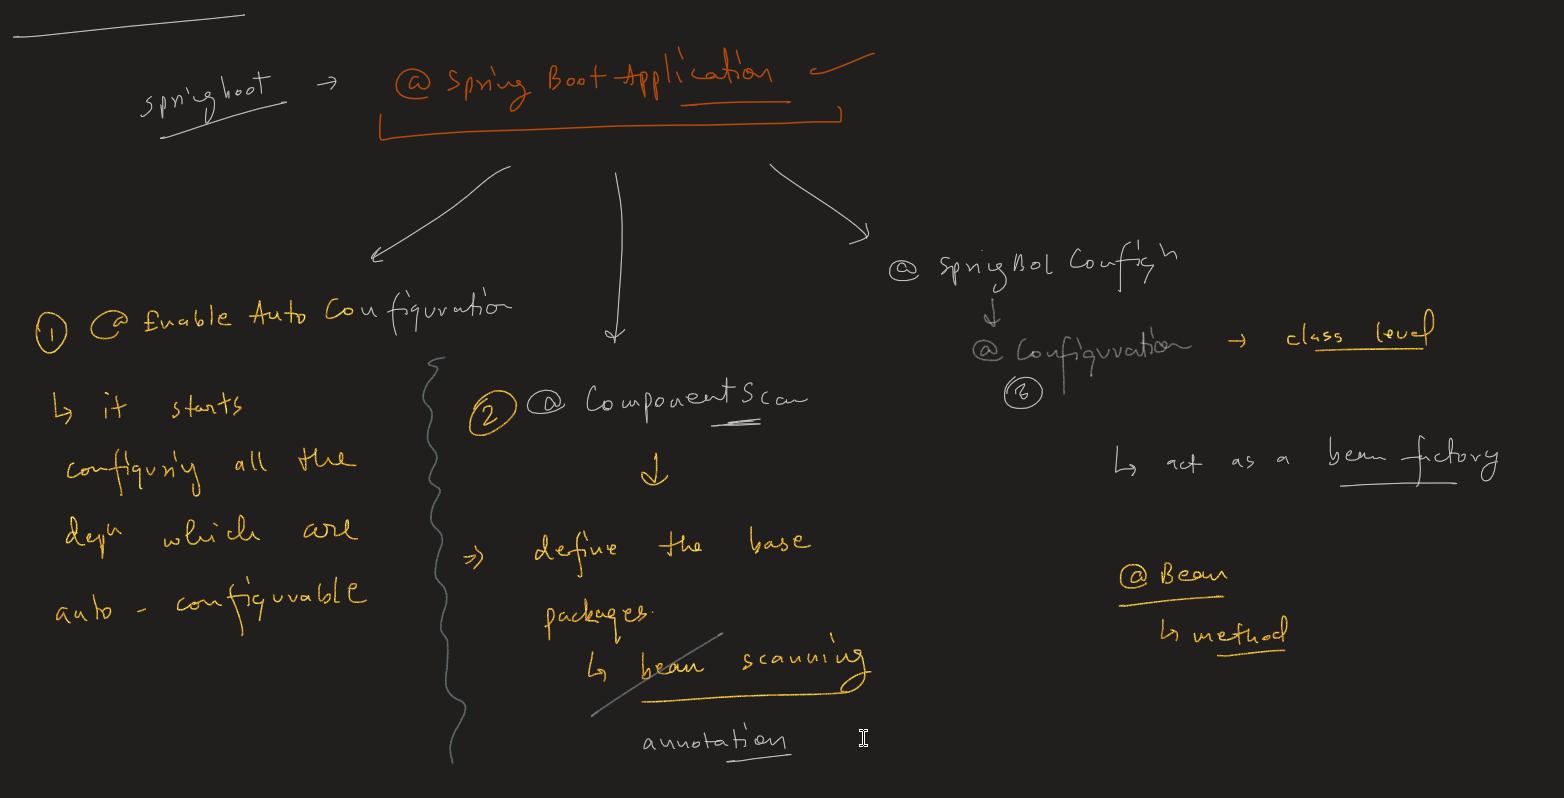 springboot → @ Spring Boot Application
@ SpringBoot Config
① @ Enable Auto Configuration
↳ it starts
configuring all the
depn which are
auto - configurable
② @ ComponentScan
⇒ define the base
packages.
↳ bean scanning
annotation
@ Configuration → class level
③
↳ act as a bean factory
@ Bean
↳ method